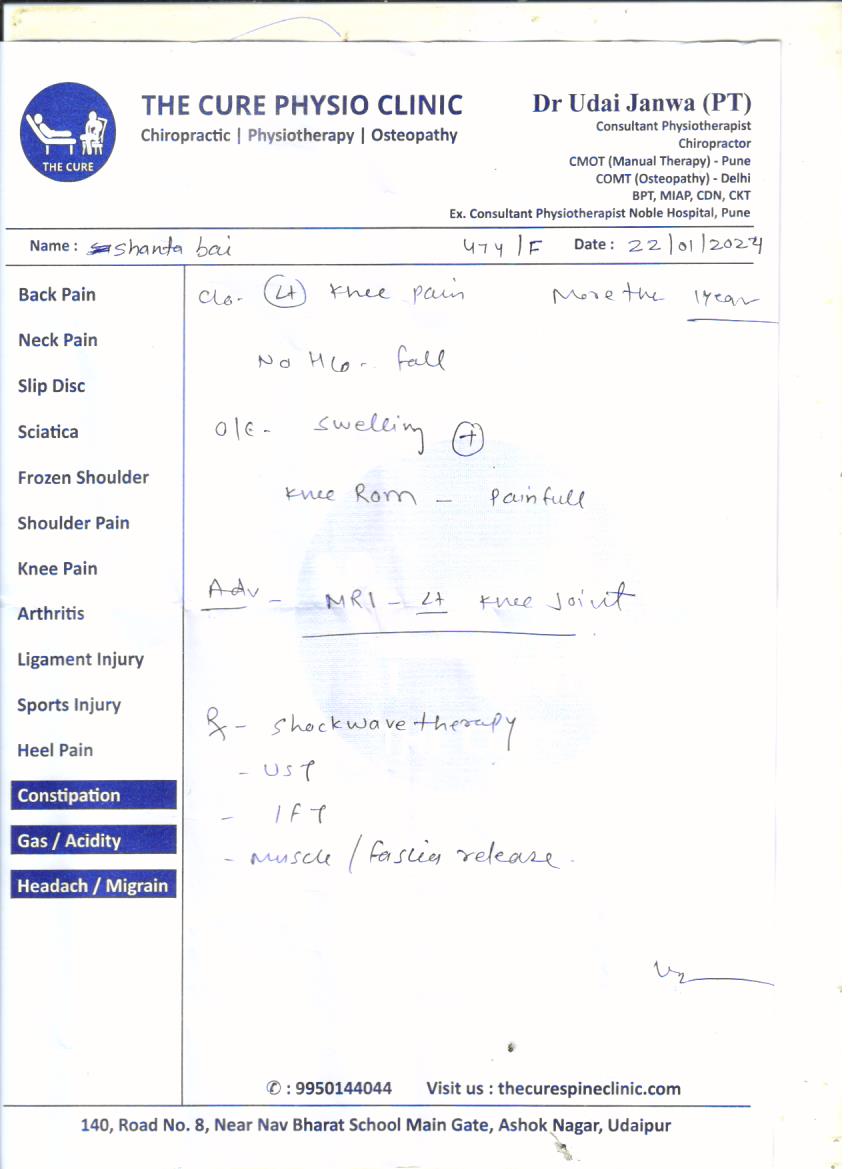 THE CURE
THE CURE PHYSIO CLINIC
Chiropractic | Physiotherapy | Osteopathy
Dr Udai Janwa (PT)
Consultant Physiotherapist
Chiropractor
CMOT (Manual Therapy) - Pune
COMT (Osteopathy) - Delhi
BPT, MIAP, CDN, CKT
Ex. Consultant Physiotherapist Noble Hospital, Pune
Name : shanta bai 47y/F Date : 22/01/2024
Back Pain
Neck Pain
Slip Disc
Sciatica
Frozen Shoulder
Shoulder Pain
Knee Pain
Arthritis
Ligament Injury
Sports Injury
Heel Pain
Constipation
Gas / Acidity
Headach / Migrain
C/o - Lt Knee pain More the 1year
No H/o - fall
O/E - swelling +
Knee Rom - Painfull
Adv - MRI - Lt Knee Joint
Rx - Shockwave therapy
- UST
- IFT
- Muscle / fascia release.
✆ : 9950144044 Visit us : thecurespineclinic.com
140, Road No. 8, Near Nav Bharat School Main Gate, Ashok Nagar, Udaipur